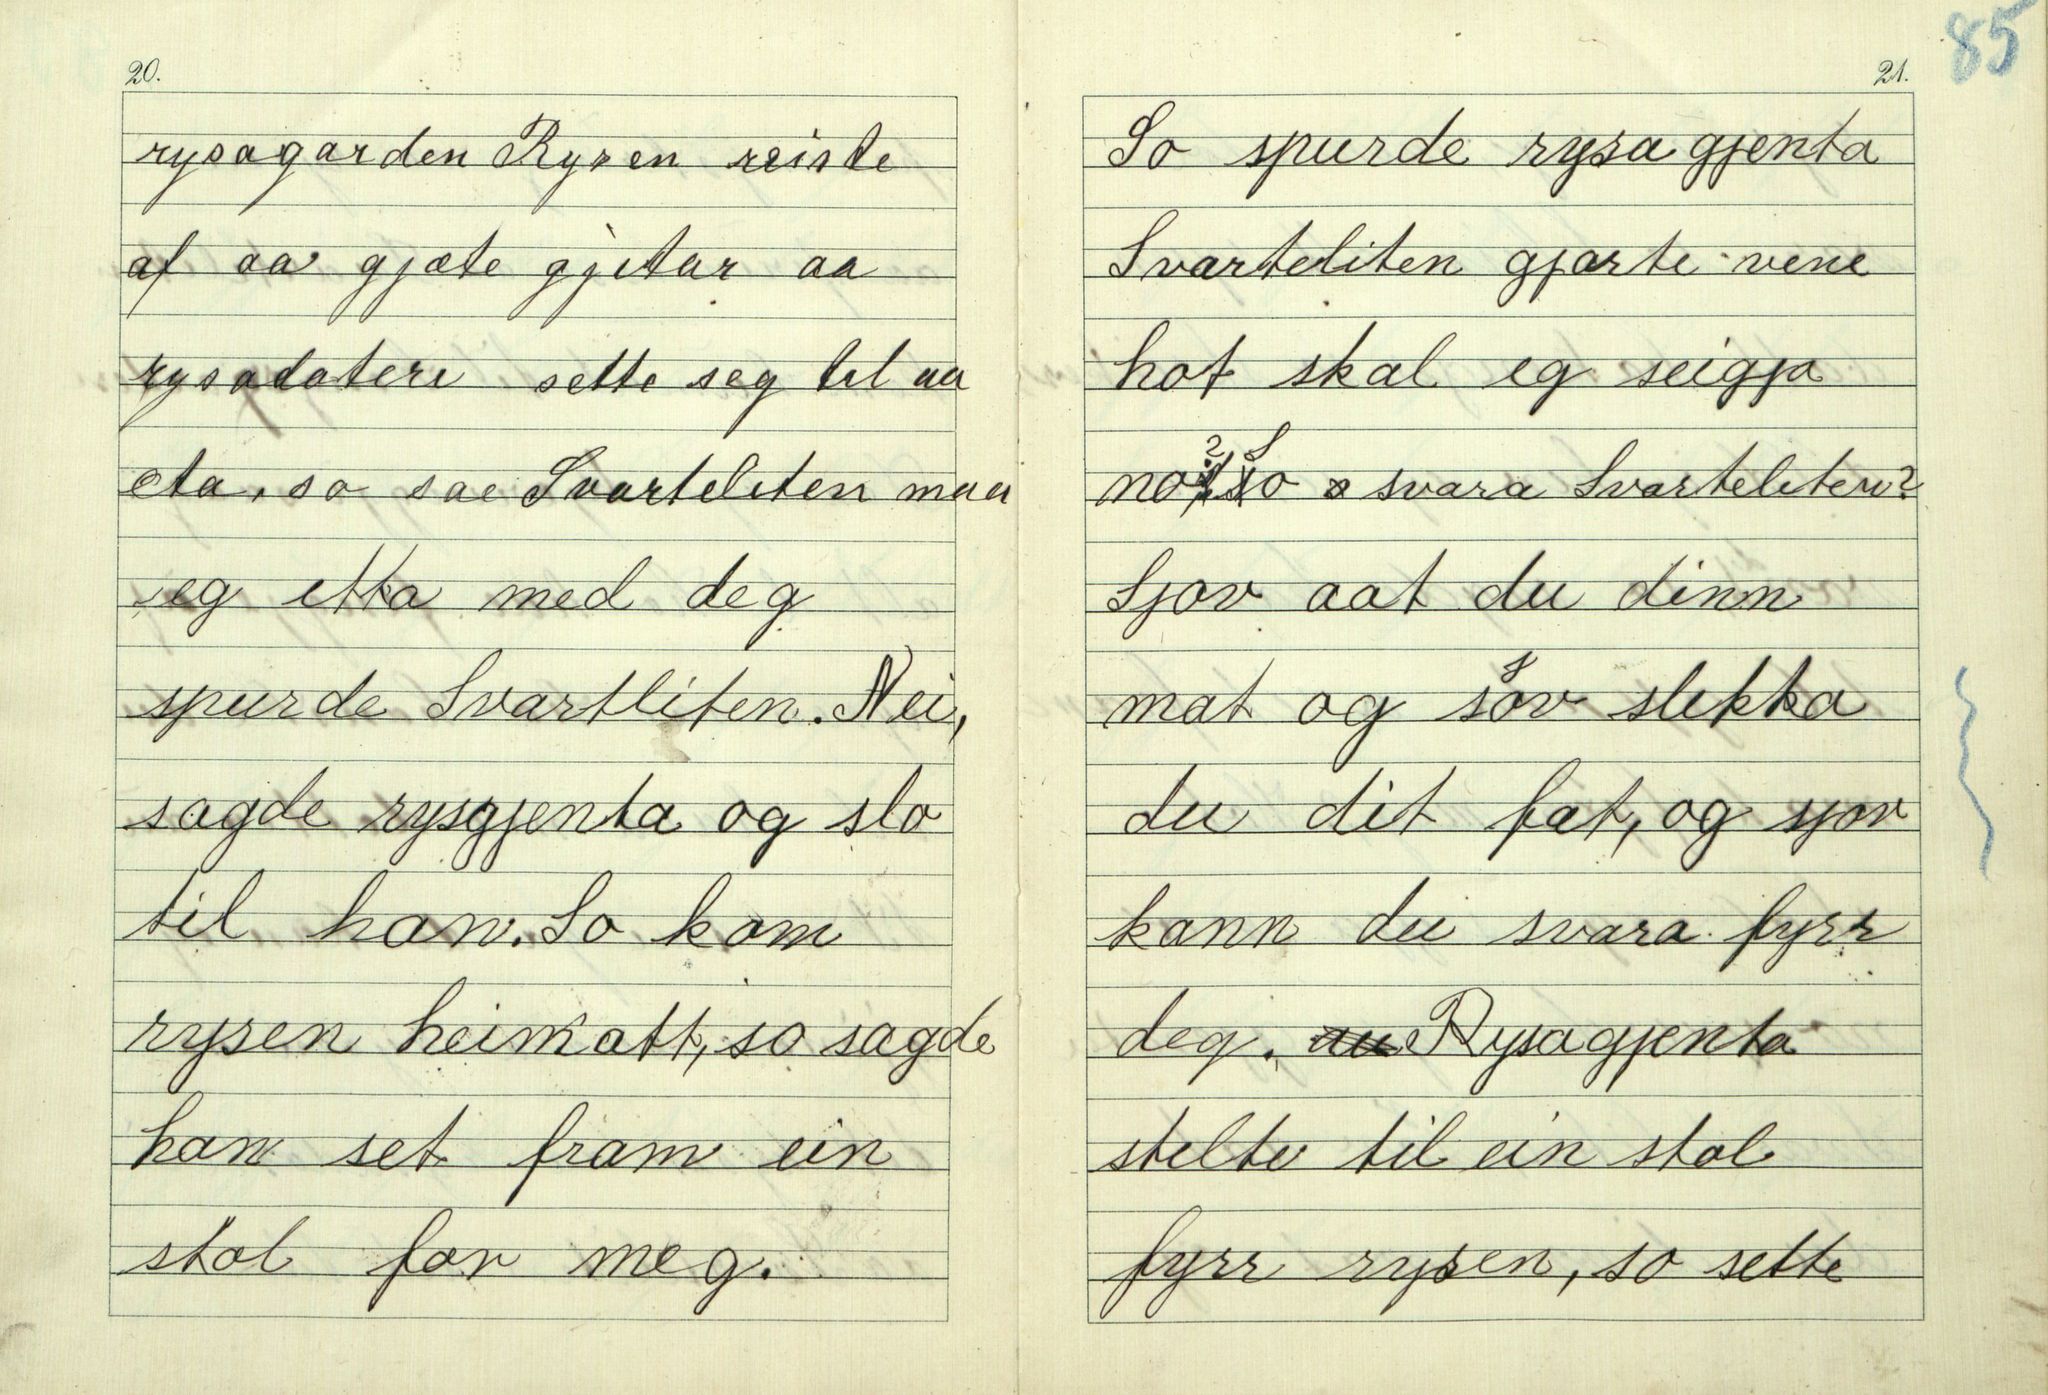 20.
rysagarden Rysen reiste
af aa gjæte gjetar aa
rysadoteri sette seg til aa
eta, so sae Svarteliten maa
eg etka med deg
spurde Svartliten. Nei,
sagde rysgjenta og slo
til han. So kom
rysen heimatt, so sagde
han set fram ein
stol for meg.
85
21.
So spurde rysagjenta
Svarteliten gjarte vene
hot skal eg seigja
no? So svara Svarteliten?
Sjov aat du dinn
mat og sjov slekka
du dit fat, og sjov
kann du svara fyrr
deg. Rysagjenta
stelte til ein stol
fyrr rysen, so sette